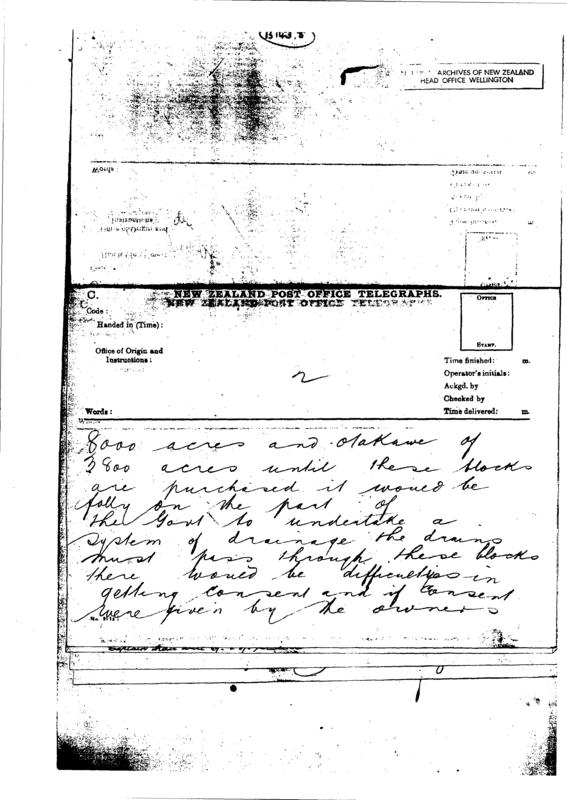 B143.8
ARCHIVES OF NEW ZEALAND
HEAD OFFICE WELLINGTON
Words:
C.
NEW ZEALAND POST OFFICE TELEGRAPHS.
NEW ZEALAND POST OFFICE TELEGRAPHS
Code:
Handed in (Time):
Office of Origin and
Instructions:
OFFICE
STAMP.
Time finished: m.
Operator's initials:
Ackgd. by
Checked by
Time delivered: m.
2
Words:
8000 acres and Otakawe of
3800 acres until these blocks
are purchased it would be
folly on the part of
the Govt to undertake a
system of drainage the drains
must pass through these blocks
there would be difficulties in
getting consent and if consent
were given by the owners